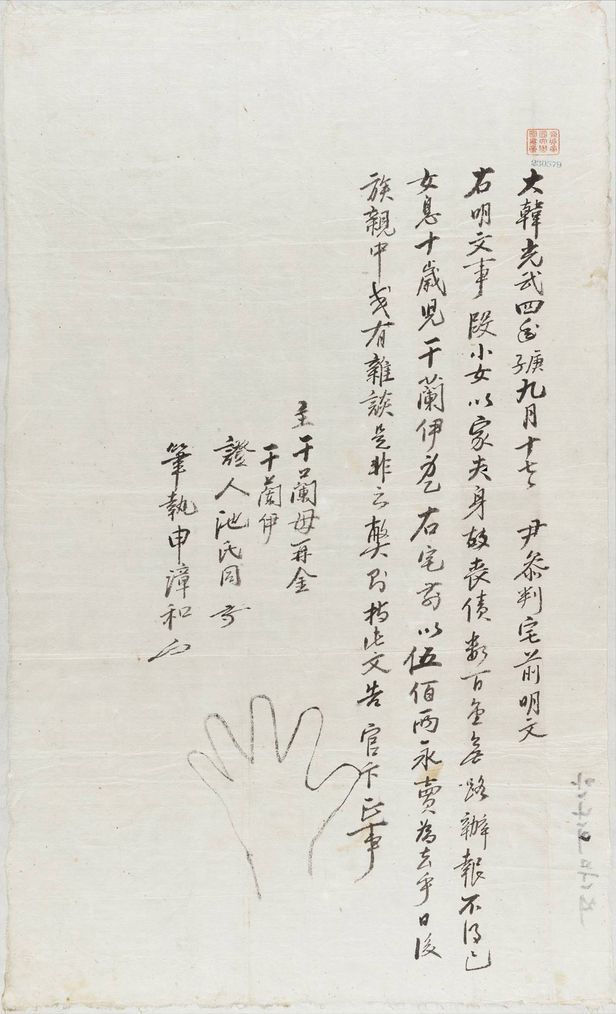 大韓光武四年庚子九月十七日 尹參判宅前明文
右明文事段小女以家夫身故喪債數百金無路辦報不得已
女息十歲児干蘭伊乙右宅前以伍佰兩永賣為去乎日後
族親中或有雜談是非之獘則持此文告 官卞正事
主干蘭母再金
干蘭伊
證人池氏同
筆執申漳和
230579